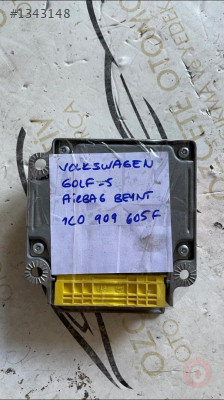 #1343148
VOLKSWAGEN
GOLF-5
AiRBAG BEYNİ
1C0 909 605F